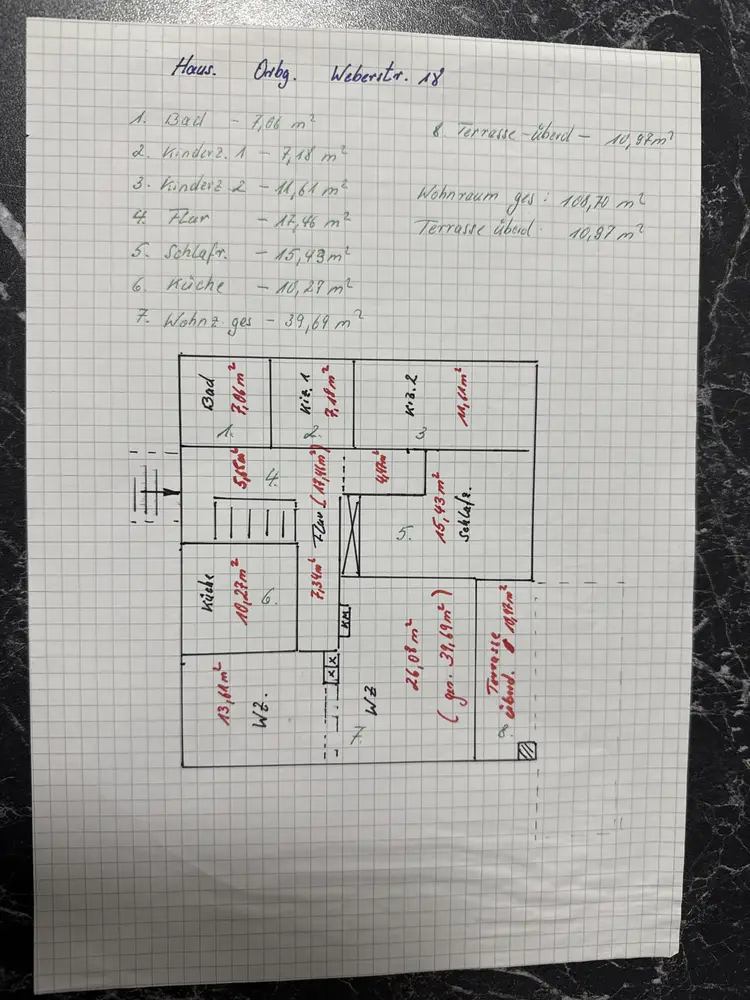 Haus. Orbg. Weberstr. 18
1. Bad - 7,06 m²
2. Kinderz. 1 - 7,18 m²
3. Kinderz 2 - 11,61 m²
4. Flur - 17,46 m²
5. Schlafr. - 15,43 m²
6. Küche - 10,27 m²
7. Wohnz ges - 39,69 m²
8. Terrasse-überd - 10,97 m²
Wohnraum ges: 108,70 m²
Terrasse überd. 10,97 m²
Bad
7,06 m²
1.
Kiz. 1
7,18 m²
2.
Kiz. 2
11,61 m²
3
5,65 m²
4.
Flur (17,46 m²)
7,34 m²
4,47 m²
5.
15,43 m²
Schlafr.
Küche
10,27 m²
6.
KM
X X
13,61 m²
WZ.
WZ
7.
26,08 m²
(ges. 39,69 m²)
Terrasse
überd. 10,97 m²
8.